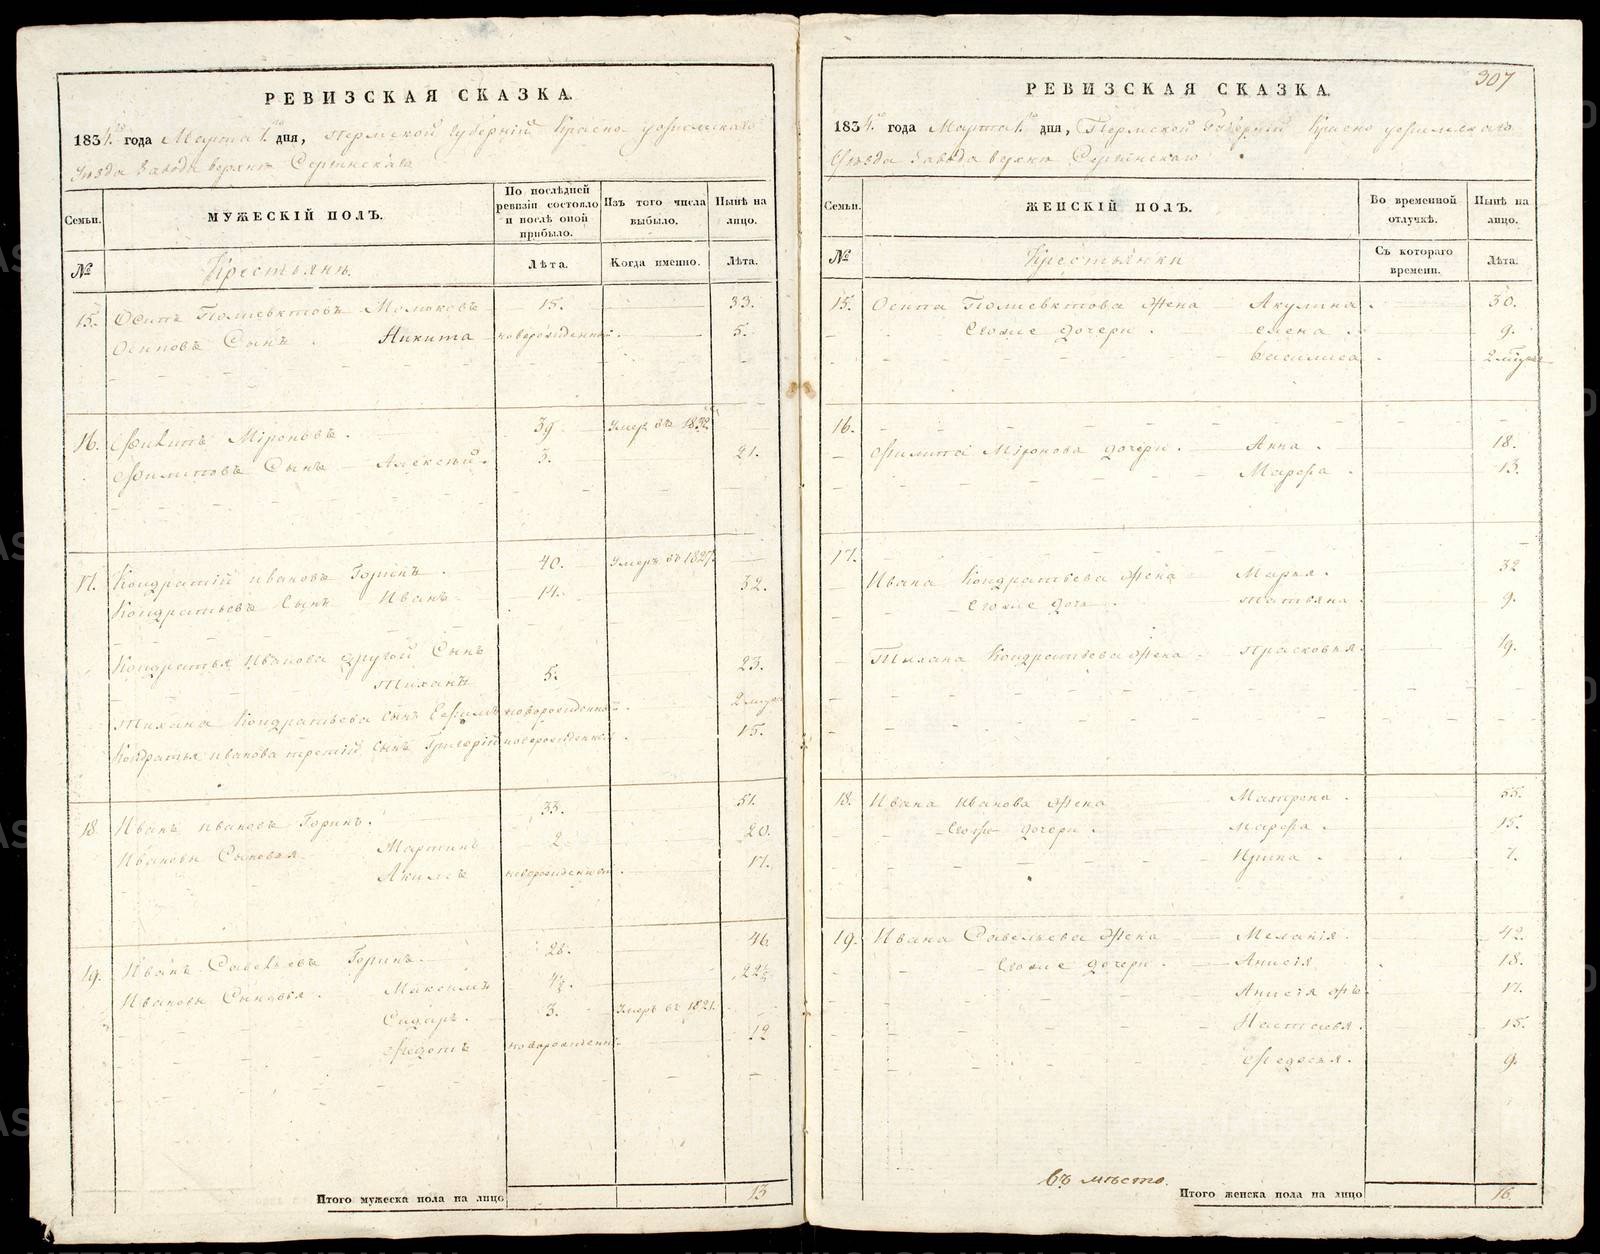 РЕВИЗСКАЯ СКАЗКА.
1834го года Марта 1го дня, Пермской Губерніи Красно уфимскаго
Уѣзда Завода верхнѣ Сергинскаго
Семьи.
МУЖЕСКІЙ ПОЛЪ.
По послѣдней ревизіи состояло и послѣ оной прибыло.
Изъ того числа выбыло.
Нынѣ на лицо.
№
Крестьянѣ.
Лѣта.
Когда именно.
Лѣта.
15. Осипъ Полиевктовъ Молоковъ 15. 33.
Осиповъ Сынъ Никита новорожденный. 5.
16. Филипъ Міроновъ. 39 Умеръ въ 1832
Филиповъ Сынъ Алексѣй. 3. 21.
17. Кондратій Ивановъ Горинъ. 40. Умеръ въ 1827.
Кондратьевъ Сынъ Иванъ 14. 32.
Кондратья Иванова другой Сынъ
Тиханъ 5. 23.
Тихана Кондратьева сынъ Ефимъ новорожденный.
Кондратья Иванова третій сынъ Григорій новорожденный. 15.
18. Иванъ Ивановъ Горинъ. 33. 51.
Ивановы Сыновья Мартинъ 2 20.
Акимъ новорожденный. 17.
19. Иванъ Савельевъ Горинъ. 28. 46
Ивановы Сыновья. Максимъ 4½. 22½
Сидаръ. 3. Умеръ въ 1821.
Федотъ новорожденный. 12
Итого мужеска пола на лицо 13
307
РЕВИЗСКАЯ СКАЗКА.
1834го года Марта 1го дня, Пермской Губерніи Красно уфимскаго
Уѣзда Завода верхнѣ Сергинскаго
Семьи.
ЖЕНСКІЙ ПОЛЪ.
Во временной отлучкѣ.
Нынѣ на лицо.
№
Крестьянки
Съ котораго времени.
Лѣта.
15. Осипа Полиевктова Жена Акулина. 30.
Егоже дочери. Елена. 9.
Василиса
16.
Филипа Міронова дочери. Анна. 18.
Марфа. 13.
17.
Ивана Кондратьева Жена Марья. 32
Егоже дочь. Татьяна. 9.
Тихана Кондратьева Жена Прасковья. 19.
18. Ивана Иванова Жена Матрена. 55.
Егоже дочери. Марфа. 15.
Ирина. 7.
19. Ивана Савельева Жена Меланія. 42.
Егоже дочери. Анисія 18.
Анисія Фъ. 17.
Настасья. 15.
Федосья. 9.
въ мѣсто.
Итого женска пола на лицо 16.